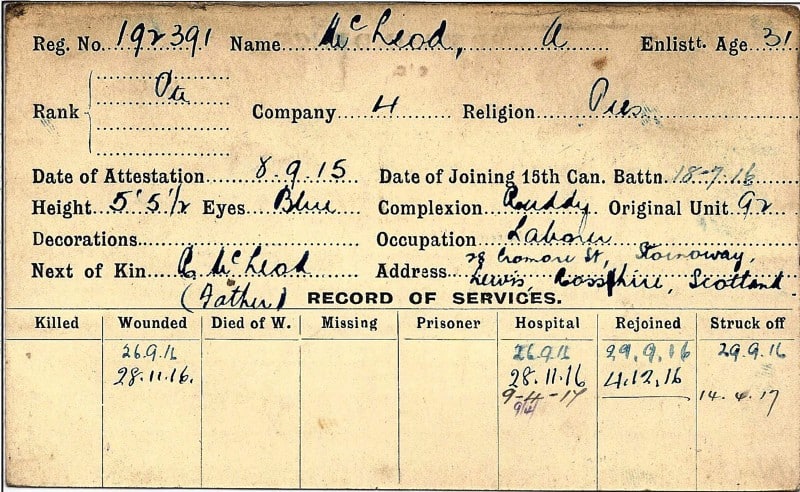 Reg. No. 192391 Name McLeod, A Enlistt. Age 31
Rank Pte Company 4 Religion Pres
Date of Attestation 8.9.15 Date of Joining 15th Can. Battn. 18-7-16
Height 5' 5 1/2 Eyes Blue Complexion Ruddy Original Unit 92
Decorations Occupation Labourer
Next of Kin McLeod Address 28 Cromore St, Stornoway,
(Father) Lewis, Rossshire, Scotland
RECORD OF SERVICES.
Killed Wounded Died of W. Missing Prisoner Hospital Rejoined Struck off
26.9.16 26.9.16 29.9.16 29.9.16
28.11.16. 28.11.16 4.12.16
9-4-17 14.4.17
9/4/